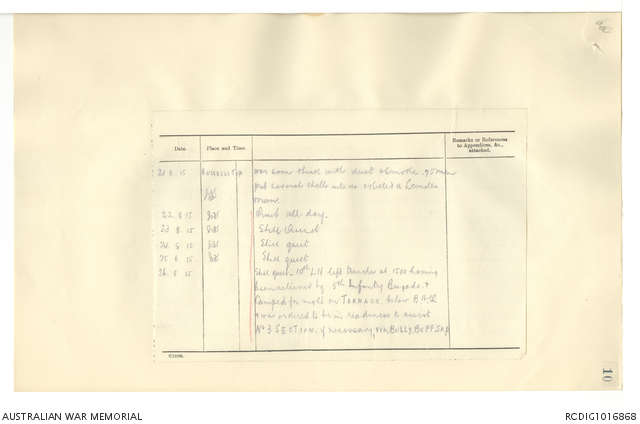 Date.
Place and Time
Remarks or References to Appendices, &c., attached.
21.8.15
was some thick with dust & smoke. 75 mm
put several shells into
22.8.15 Quiet all day.
23.8.15 Still Quiet
24.8.15 Still quiet
25.8.15 Still quiet
26.8.15 Still quiet. 10th L.H. left trenches at 1500 having
been relieved by 5th Infantry Brigade &
camped for night on TERRACE below
& was ordered to be in readiness to assist
No 3 SECTION if necessary, via BULLY BEEF SAP
10
AUSTRALIAN WAR MEMORIAL
RCDIG1016868